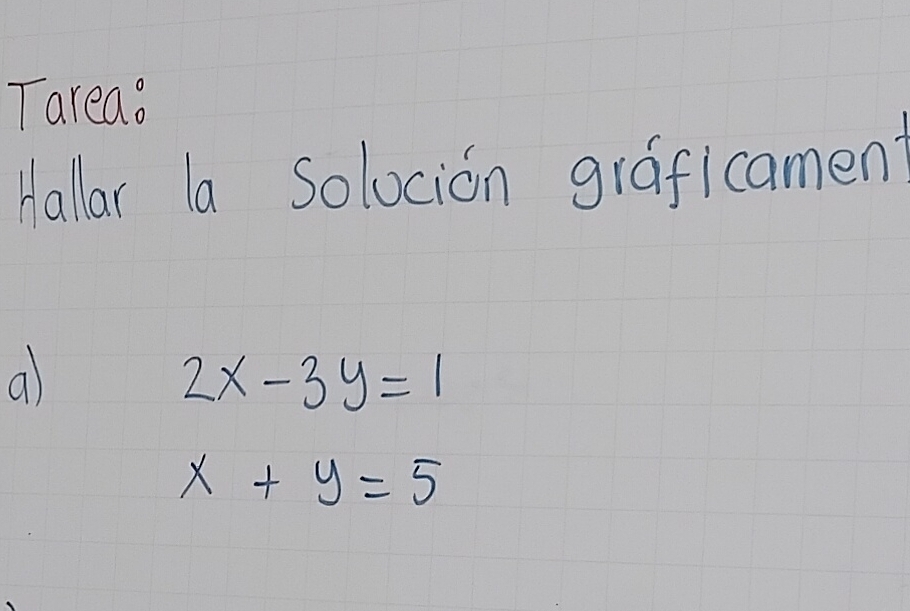 Tarea:
Hallar la Solución gráficament
a) 2x - 3y = 1
x + y = 5